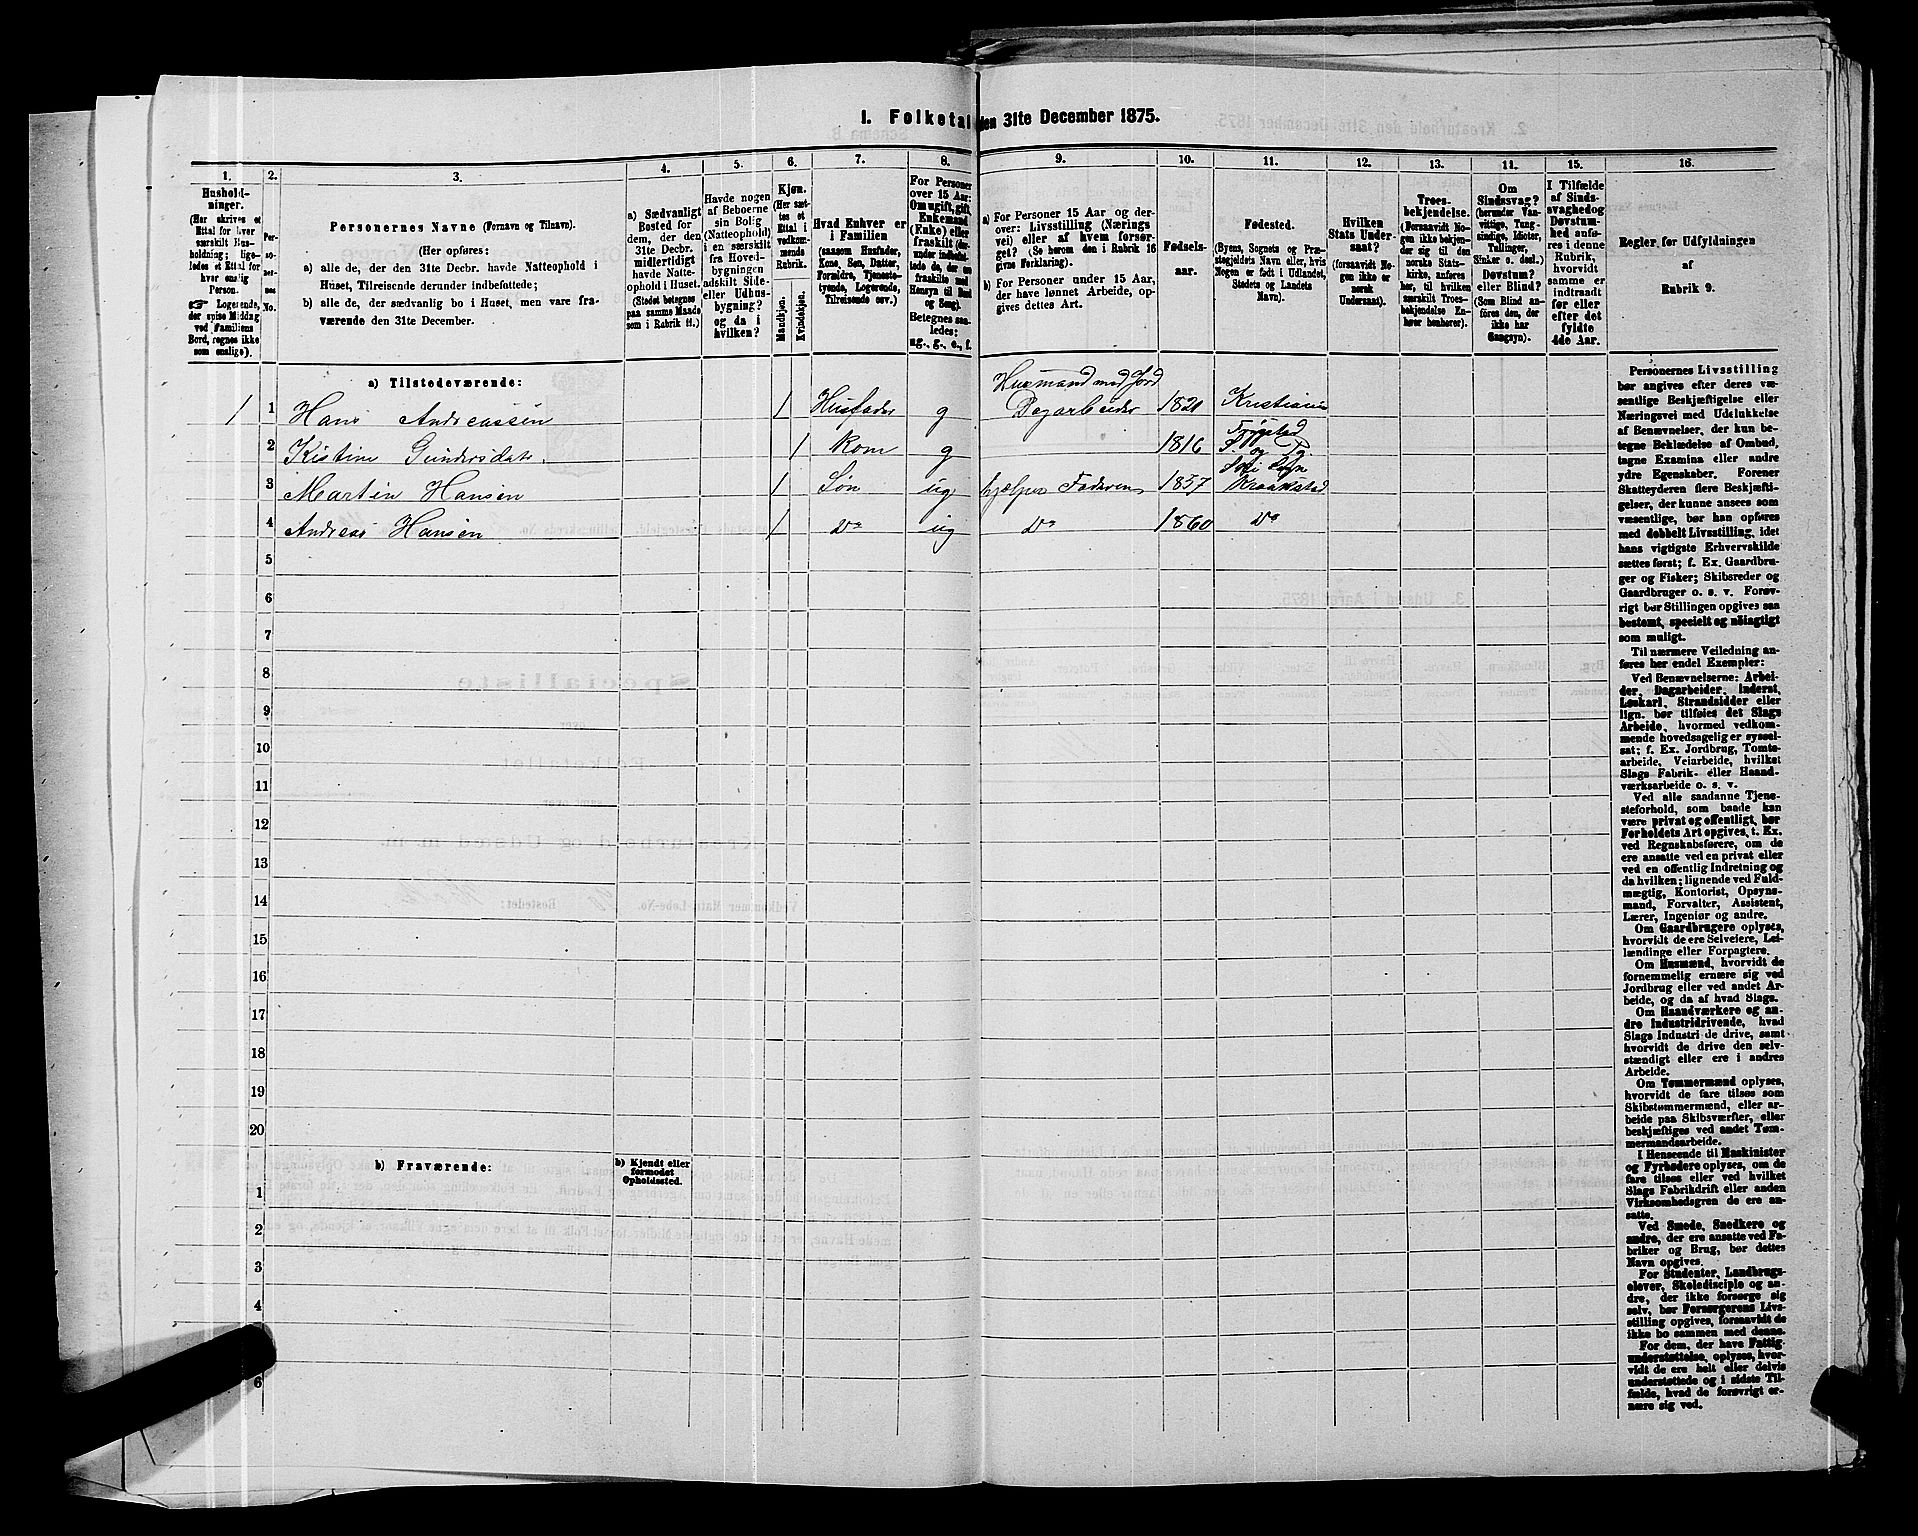 I. Folketal den 31te December 1875.
1. 2. 3. 4. 5. 6. 7. 8. 9. 10. 11. 12. 13. 14. 15. 16.
Hushold-
ninger.
(Her skrives et
Ettal for hver
særskilt Hus-
holdning; lige-
ledes et Ettal for
hver enslig
Person.
☞ Logerende,
der spise Middag
ved Familiens
Bord, regnes ikke
som enslige).
Per-
so-
ner-
nes
No.
Personernes Navne (Fornavn og Tilnavn).
(Her opføres:
a) alle de, der den 31te Decbr. havde Natteophold i
Huset, Tilreisende derunder indbefattede;
b) alle de, der sædvanlig bo i Huset, men vare fra-
værende den 31te December.
a) Sædvanligt
Bosted for
dem, der den
31te Decbr.
midlertidigt
havde Natte-
ophold i Huset.
(Stedet betegnes
paa samme Maade
som i Rubrik 11.)
Havde nogen
af Beboerne
sin Bolig
(Natteophold)
i en særskilt
fra Hoved-
bygningen
adskilt Side-
eller Udhus-
bygning?
og da i
hvilken?
Kjøn.
(Her sæt-
tes et
Ettal i
vedkom-
mende
Rubrik.
Mandkjøn.
Kvindekjøn.
Hvad Enhver er
i Familien
(saasom Husfader,
Kone, Søn, Datter,
Forældre, Tjeneste-
tyende, Logerende,
Tilreisende osv.)
For Personer
over 15 Aar:
Om ugift, gift,
Enkemand
(Enke) eller
fraskilt (der-
under indbefat-
tede de, der ere
fraskilte med
Hensyn til Bord
og Seng).
Betegnes saa-
ledes:
ug., g., e., f.
a) For Personer 15 Aar og der-
over: Livsstilling (Nærings
vei) eller af hvem forsør-
get? (Se herom den i Rubrik 16
givne Forklaring).
b) For Personer under 15 Aar,
der have lønnet Arbeide, op-
gives dettes Art.
Fødsels-
aar.
Fødested.
(Byens, Sognets og Præ-
stegjeldets Navn eller, hvis
Nogen er født i Udlandet,
Stedets og Landets
Navn).
Hvilken
Stats Under-
saat?
(forsaavidt No-
gen ikke er
norsk
Undersaat).
Troes-
bekjendelse.
(Forsaavidt No-
gen ikke bekjen-
der sig til den
norske Stats-
kirke, anføres
her, til hvilken
særskilt Troes-
bekjendelse En-
hver henhører).
Om
Sindssvag?
(herunder Van-
vittige, Tung-
sindige, Idioter,
Tullinger,
Sinker o. desl.)
Døvstum?
eller Blind?
(Som Blind an-
føres den, der
ikke har
Gangsyn).
I Tilfælde
af Sinds-
svaghed og
Døvstum-
hed anfø-
res i denne
Rubrik,
hvorvidt
samme er
indtraadt
før eller
efter det
fyldte
4de Aar.
Regler for Udfyldningen
af
Rubrik 9.
a) Tilstedeværende:
1 1 Hans Andreassen 1 Husfader g Husmand med Jord
Dagarbeider 1821 Kristiania
2 Kistine Gundersdatr. 1 Kone g 1816 Trøgstad
S. og Pg
3 Martin Hansen 1 Søn ug hjelper Faderen 1857 Ski Sogn
Kraakstad
4 Andreas Hansen 1 Do ug Do 1860 Do
5
6
7
8
9
10
11
12
13
14
15
16
17
18
19
20
b) Fraværende:
b) Kjendt eller
formodet
Opholdssted.
1
2
3
4
6
Personernes Livsstilling
bør angives efter deres væ-
sentlige Beskjæftigelse eller
Næringsvei med Udelukkelse
af Benævnelser, der kun be-
tegne Beklædelse af Ombud,
tagne Examina eller andre
ydre Egenskaber. Forener
Skatteyderen flere Beskjæfti-
gelser, der kunne ansees som
væsentlige, bør han opføres
med dobbelt Livsstilling, idet
hans vigtigste Erhvervskilde
sættes først; f. Ex. Gaardbru-
ger og Fisker; Skibsreder og
Gaardbruger o. s. v. Forøv-
rigt bør Stillingen opgives saa
bestemt, specielt og nøiagtigt
som muligt.
Til nærmere Veiledning an-
føres her endel Exempler:
Ved Benævnelserne: Arbei-
der, Dagarbeider, Inderst,
Løskarl, Strandsidder eller
lign. bør tilføies det Slags
Arbeide, hvormed vedkom-
mende hovedsagelig er syssel-
sat; f. Ex. Jordbrug, Tomte-
arbeide, Veiarbeide, hvilket
Slags Fabrik- eller Haand-
værksarbeide o. s. v.
Ved alle saadanne Tjene-
steforhold, som baade kan
være privat og offentligt, bør
Forholdets Art opgives, t. Ex.
ved Regnskabsførere, om de
ere ansatte ved en privat eller
ved en offentlig Indretning og
da hvilken; lignende ved Fuld-
mægtig, Kontorist, Opsyns-
mand, Forvalter, Assistent,
Lærer, Ingeniør og andre.
Om Gaardbrugere oplyses,
hvorvidt de ere Selveiere, Lei-
lændinge eller Forpagtere.
Om Husmænd, hvorvidt de
fornemmelig ernære sig ved
Jordbrug eller ved andet Ar-
beide, og da af hvad Slags.
Om Haandværkere og an-
dre Industridrivende, hvad
Slags Industri de drive, samt
hvorvidt de drive den selv-
stændigt eller ere i andres
Arbeide.
Om Tømmermænd oplyses,
hvorvidt de fare tilsøs som
Skibstømmermænd, eller ar-
beide paa Skibsværfter, eller
beskjæftiges ved andet Tøm-
mermandsarbeide.
I Henseende til Maskinister
og Fyrbødere oplyses, om de
fare tilsøs eller ved hvilket
Slags Fabrikdrift eller anden
Virksomhedsgren de ere an-
satte.
Ved Smede, Snedkere og
andre, der ere ansatte ved Fa-
briker og Brug, bør dettes
Navn opgives.
For Studenter, Landbrugs-
elever, Skoledisciple og an-
dre, der ikke forsørge sig
selv, bør Forsørgerens Livs-
stilling opgives, forsaavidt de
ikke bo sammen med denne.
For dem, der have Fattig-
understøttelse, oplyses, hvor-
vidt de ere helt eller delvis
understøttede og i sidste Til-
fælde, hvad de forøvrigt er-
nære sig ved.